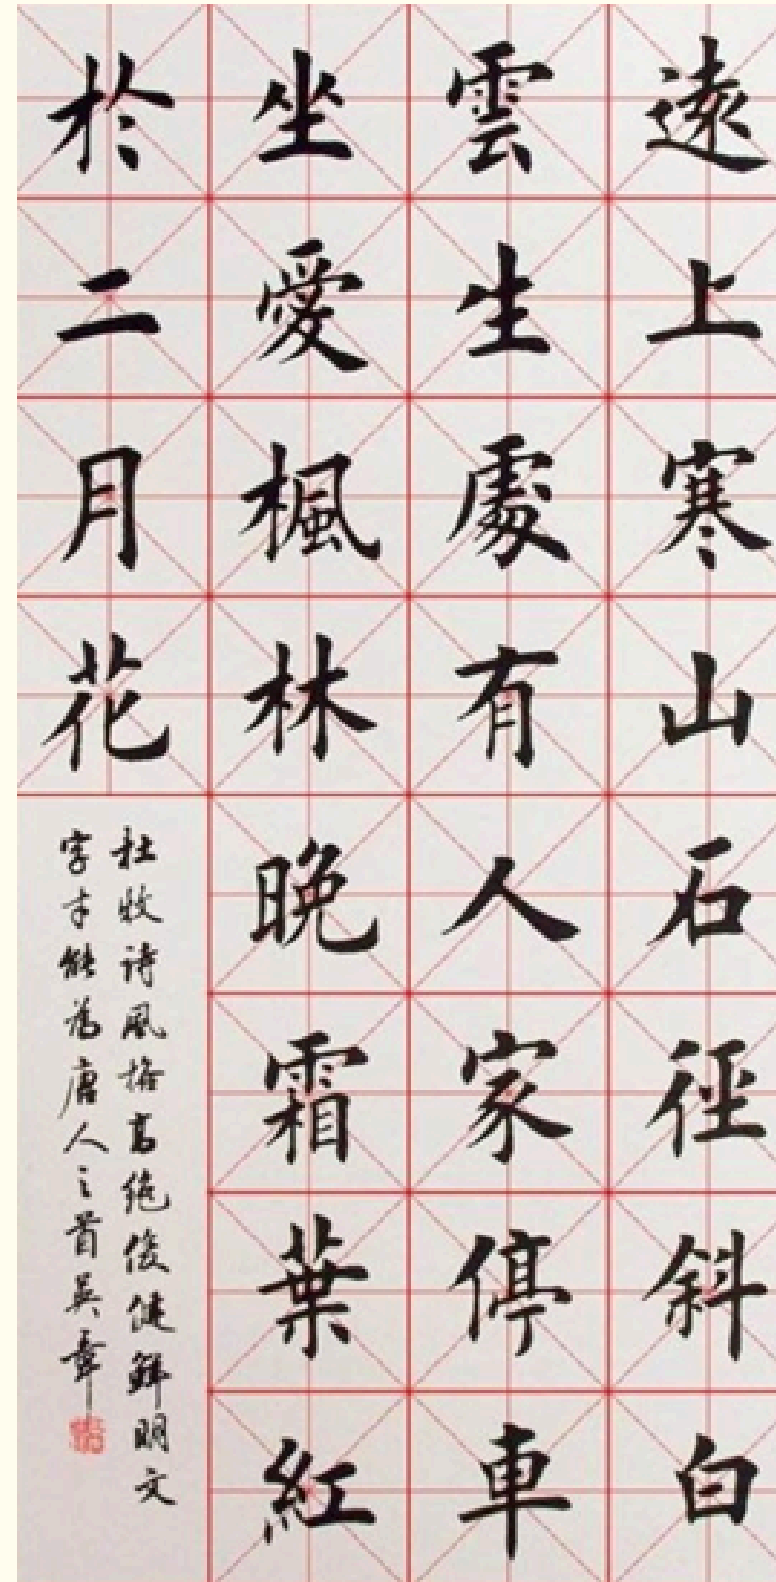 遠上寒山石徑斜白
雲生處有人家停車
坐愛楓林晚霜葉紅
於二月花
杜牧詩風格高絶俊健鮮明文
字才能為唐人之首吳章